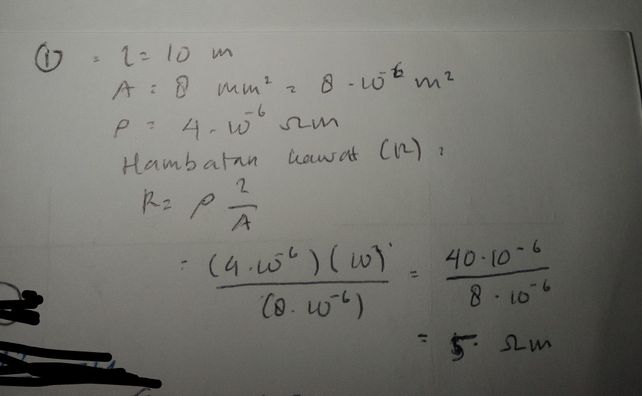 ① = l = 10 m
A = 8 mm² = 8 · 10⁻⁶ m²
ρ = 4 · 10⁻⁶ Ωm
Hambatan kawat (R) :
R = ρ l/A
= (4 · 10⁻⁶) (10) / (8 · 10⁻⁶) = 40 · 10⁻⁶ / 8 · 10⁻⁶
= 5 Ωm